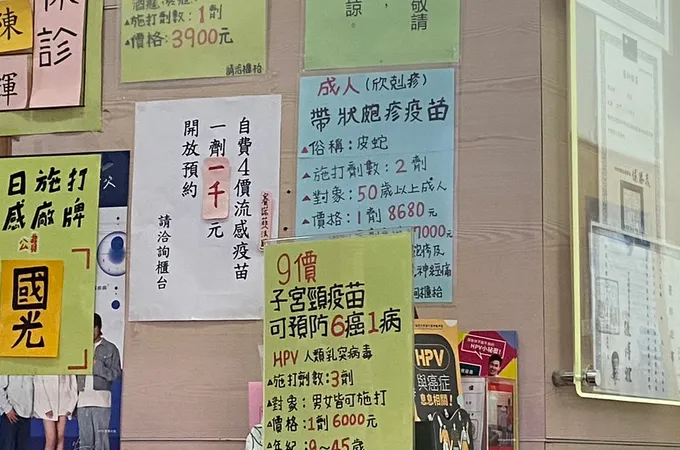 陳
診
輝
▲施打劑數：1劑
▲價格：3900元
請洽櫃枱
敬請
諒。
自費4價流感疫苗
一劑一千元
開放預約
請洽詢櫃台
成人(欣剋疹)
帶狀皰疹疫苗
▲俗稱：皮蛇
▲施打劑數：2劑
▲對象：50歲以上成人
▲價格：1劑8680元
7000元
神經痛
日施打
感廠牌
公費
國光
9價
子宮頸疫苗
可預防6癌1病
HPV 人類乳突病毒
▲施打劑數：3劑
▲對象：男女皆可施打
▲價格：1劑6000元
▲年紀：9～45歲
HPV
與癌症
HPV小秘密!